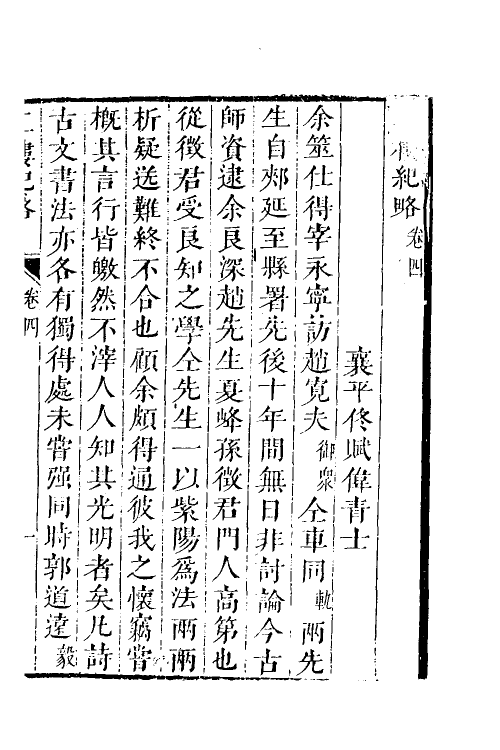 樓紀略卷四
襄平佟賦偉青士
余筮仕得宰永寧訪趙寬夫御衆仝車同軌兩先
生自郟延至縣署先後十年間無日非討論今古
師資逮余良深趙先生夏峰孫徵君門人高第也
從徵君受良知之學仝先生一以紫陽爲法兩兩
析疑送難終不合也顧余頗得通彼我之懷竊嘗
槪其言行皆皦然不滓人人知其光明者矣凡詩
古文書法亦各有獨得處未嘗强同時郭道逹毅
二樓紀略 卷四 一